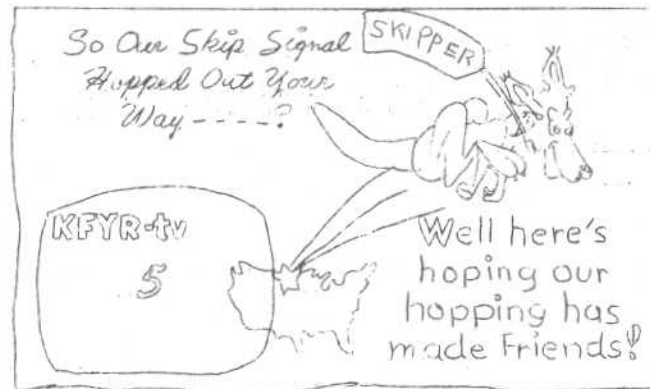 So Our Skip Signal
Hopped Out Your
Way -----?
SKIPPER
KFYR-tv
5
Well here's
hoping our
hopping has
made Friends!